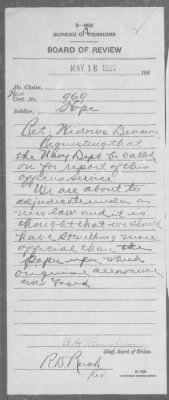 3-202
BUREAU OF PENSIONS
BOARD OF REVIEW
MAY 18 1927, 192
No. Claim,
Cert. No. 969
Soldier, Hope
Ret. Widows Division
Requesting that
the Navy Dept be called
on for report of this
officers service.
We are about to
adjudicate under a
new law and it is
thought that we should
have something more
official than the
paper upon which
original allowance
was based.
Chief, Board of Review.
R.D. Rush
Rev.